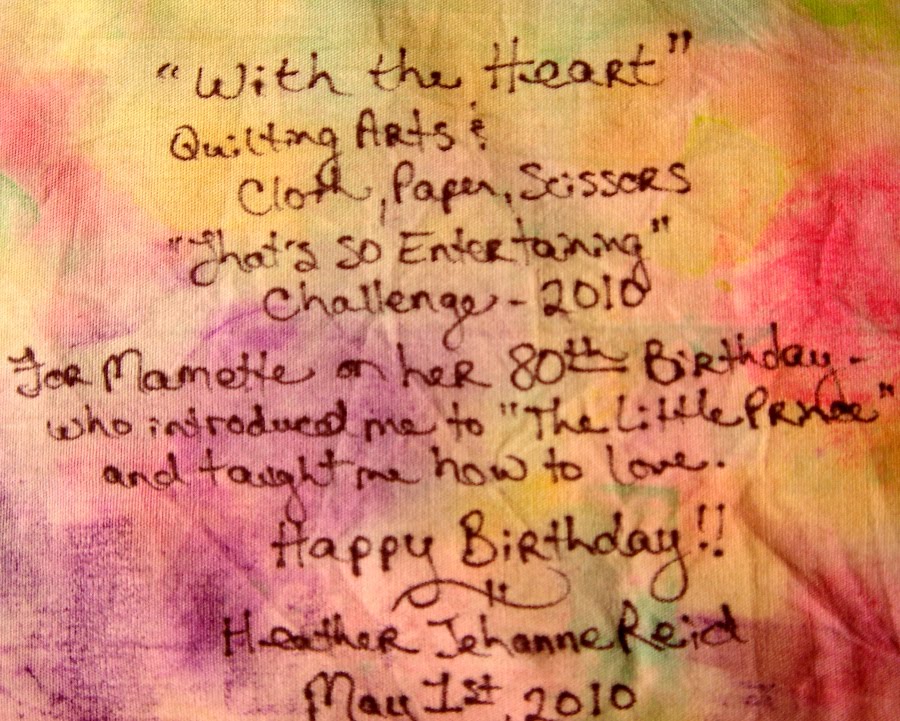 "With the Heart"
Quilting Arts &
Cloth, Paper, Scissors
"That's so Entertaining"
Challenge - 2010
For Mamette on her 80th Birthday -
who introduced me to "The Little Prince"
and taught me how to love.
Happy Birthday!!
Heather Jehanne Reid
May 1st, 2010